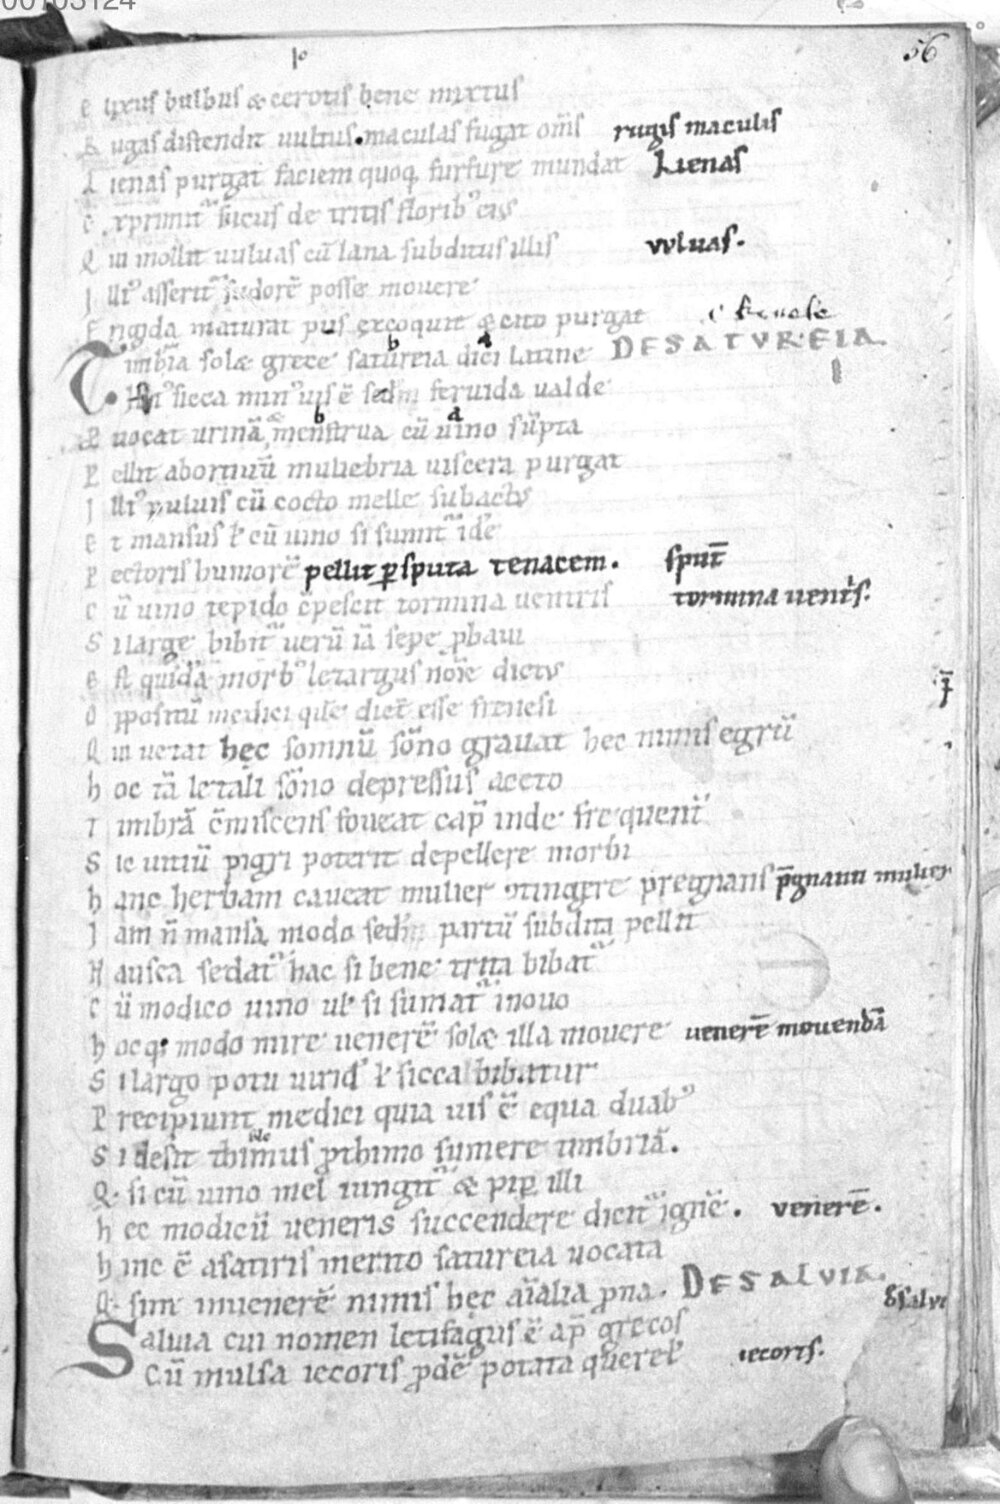 00103124
56
Elixus bulbus & cerotis bene mixtus
Rugas distendit uultus. maculas fugat om̄s rugis maculis
Lienas purgat faciem quoq; furfure mundat Lienas
Exprimit᷑ sucus de tritis floribꝰ eiꝰ
Qui mollit uuluas cū lana subditus illis vvluas.
Illiꝰ asserit᷑ sudorē posse mouere
Frigida maturat pus excoquit & cito purgat
DE SATUREIA.
Timbra solæ grece satureia dici Latine
sicca minꝰ uis ē sed feruida ualde
Prouocat urinā & menstrua cū uino sūpta
Pellit abortiuū muliebria uiscera purgat
Illiꝰ puluis cū cocto melle subactꝰ
Et mansus ł cū uino si sumit᷑ idē
Pectoris humorē pellit ꝑ sputa tenacem. sput̄
Cū uino tepido cōpescit tormina uentris tormina uentis.
Si large bibit᷑ uerū iā sepe ꝓbaui
Est quidā morbꝰ letargus noīe dictꝰ
Oppositū medici quē dict̄ esse frenesi
Qui uetat hec somnū sōno grauat hec nimis egrū
Hoc tā letali sōno depressus aceto
Timbrā cōmiscens foueat cap̄ inde frequent̄
Sic uitiū pigri poterit depellere morbi
Hanc herbam caueat mulier ꝯtingere pregnans p̄gnanti mulier
Iam n̄ mansa modo sed partū subdita pellit
Nausea sedat᷑ hac si bene trita bibat᷑
Cū modico uino uł si sumat᷑ in ouo
Hocq; modo mire uenerē solæ illa mouere uenerē mouendā
Si largo potu uirid̄ ł sicca bibatur
Precipiunt medici quia uis ē equa duabꝰ
Si desit thimus ꝓ thimo sumere timbriā.
Q. si cū uino mel iungit᷑ & pip̄ illi
Hec modicū ueneris succendere dicit᷑ ignē. venerē.
Hinc ē a satiris merito satureia uocata
Q. sint in uenerē nimis hec aīalia ꝓna. DE SALVIA.
Saluia cui nomen letifagus ē ap̄ grecos
Cū mulsa iecoris ꝓdē potata quereł iecoris.